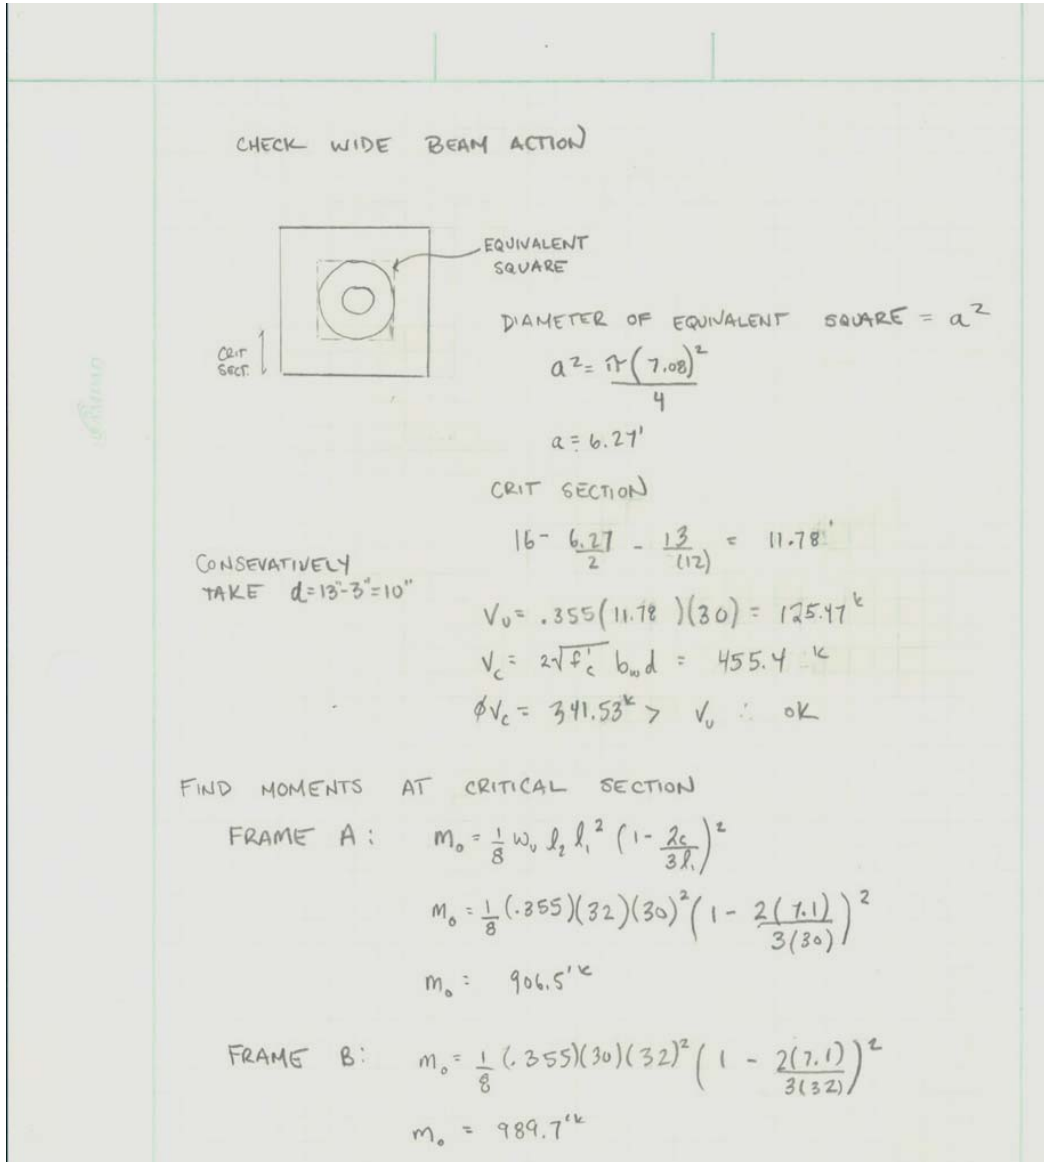 CHECK WIDE BEAM ACTION
EQUIVALENT
SQUARE
CRIT
SECT.
DIAMETER OF EQUIVALENT SQUARE = a²
a² = π(7.08)²/4
a = 6.27'
CRIT SECTION
16 - 6.27/2 - 13/(12) = 11.78'
CONSEVATIVELY
TAKE d=13"-3"=10"
Vᵤ = .355(11.78 )(30) = 125.47ᵏ
V_c = 2√f'_c b_w d = 455.4 ᵏ
φV_c = 341.53ᵏ > Vᵤ ∴ OK
FIND MOMENTS AT CRITICAL SECTION
FRAME A: M₀ = 1/8 wᵤ l₂ l₁² (1 - 2c/3l₁)²
M₀ = 1/8 (.355)(32)(30)² (1 - 2(7.1)/3(30))²
M₀ = 906.5'ᵏ
FRAME B: M₀ = 1/8 (.355)(30)(32)² (1 - 2(7.1)/3(32))²
M₀ = 989.7'ᵏ